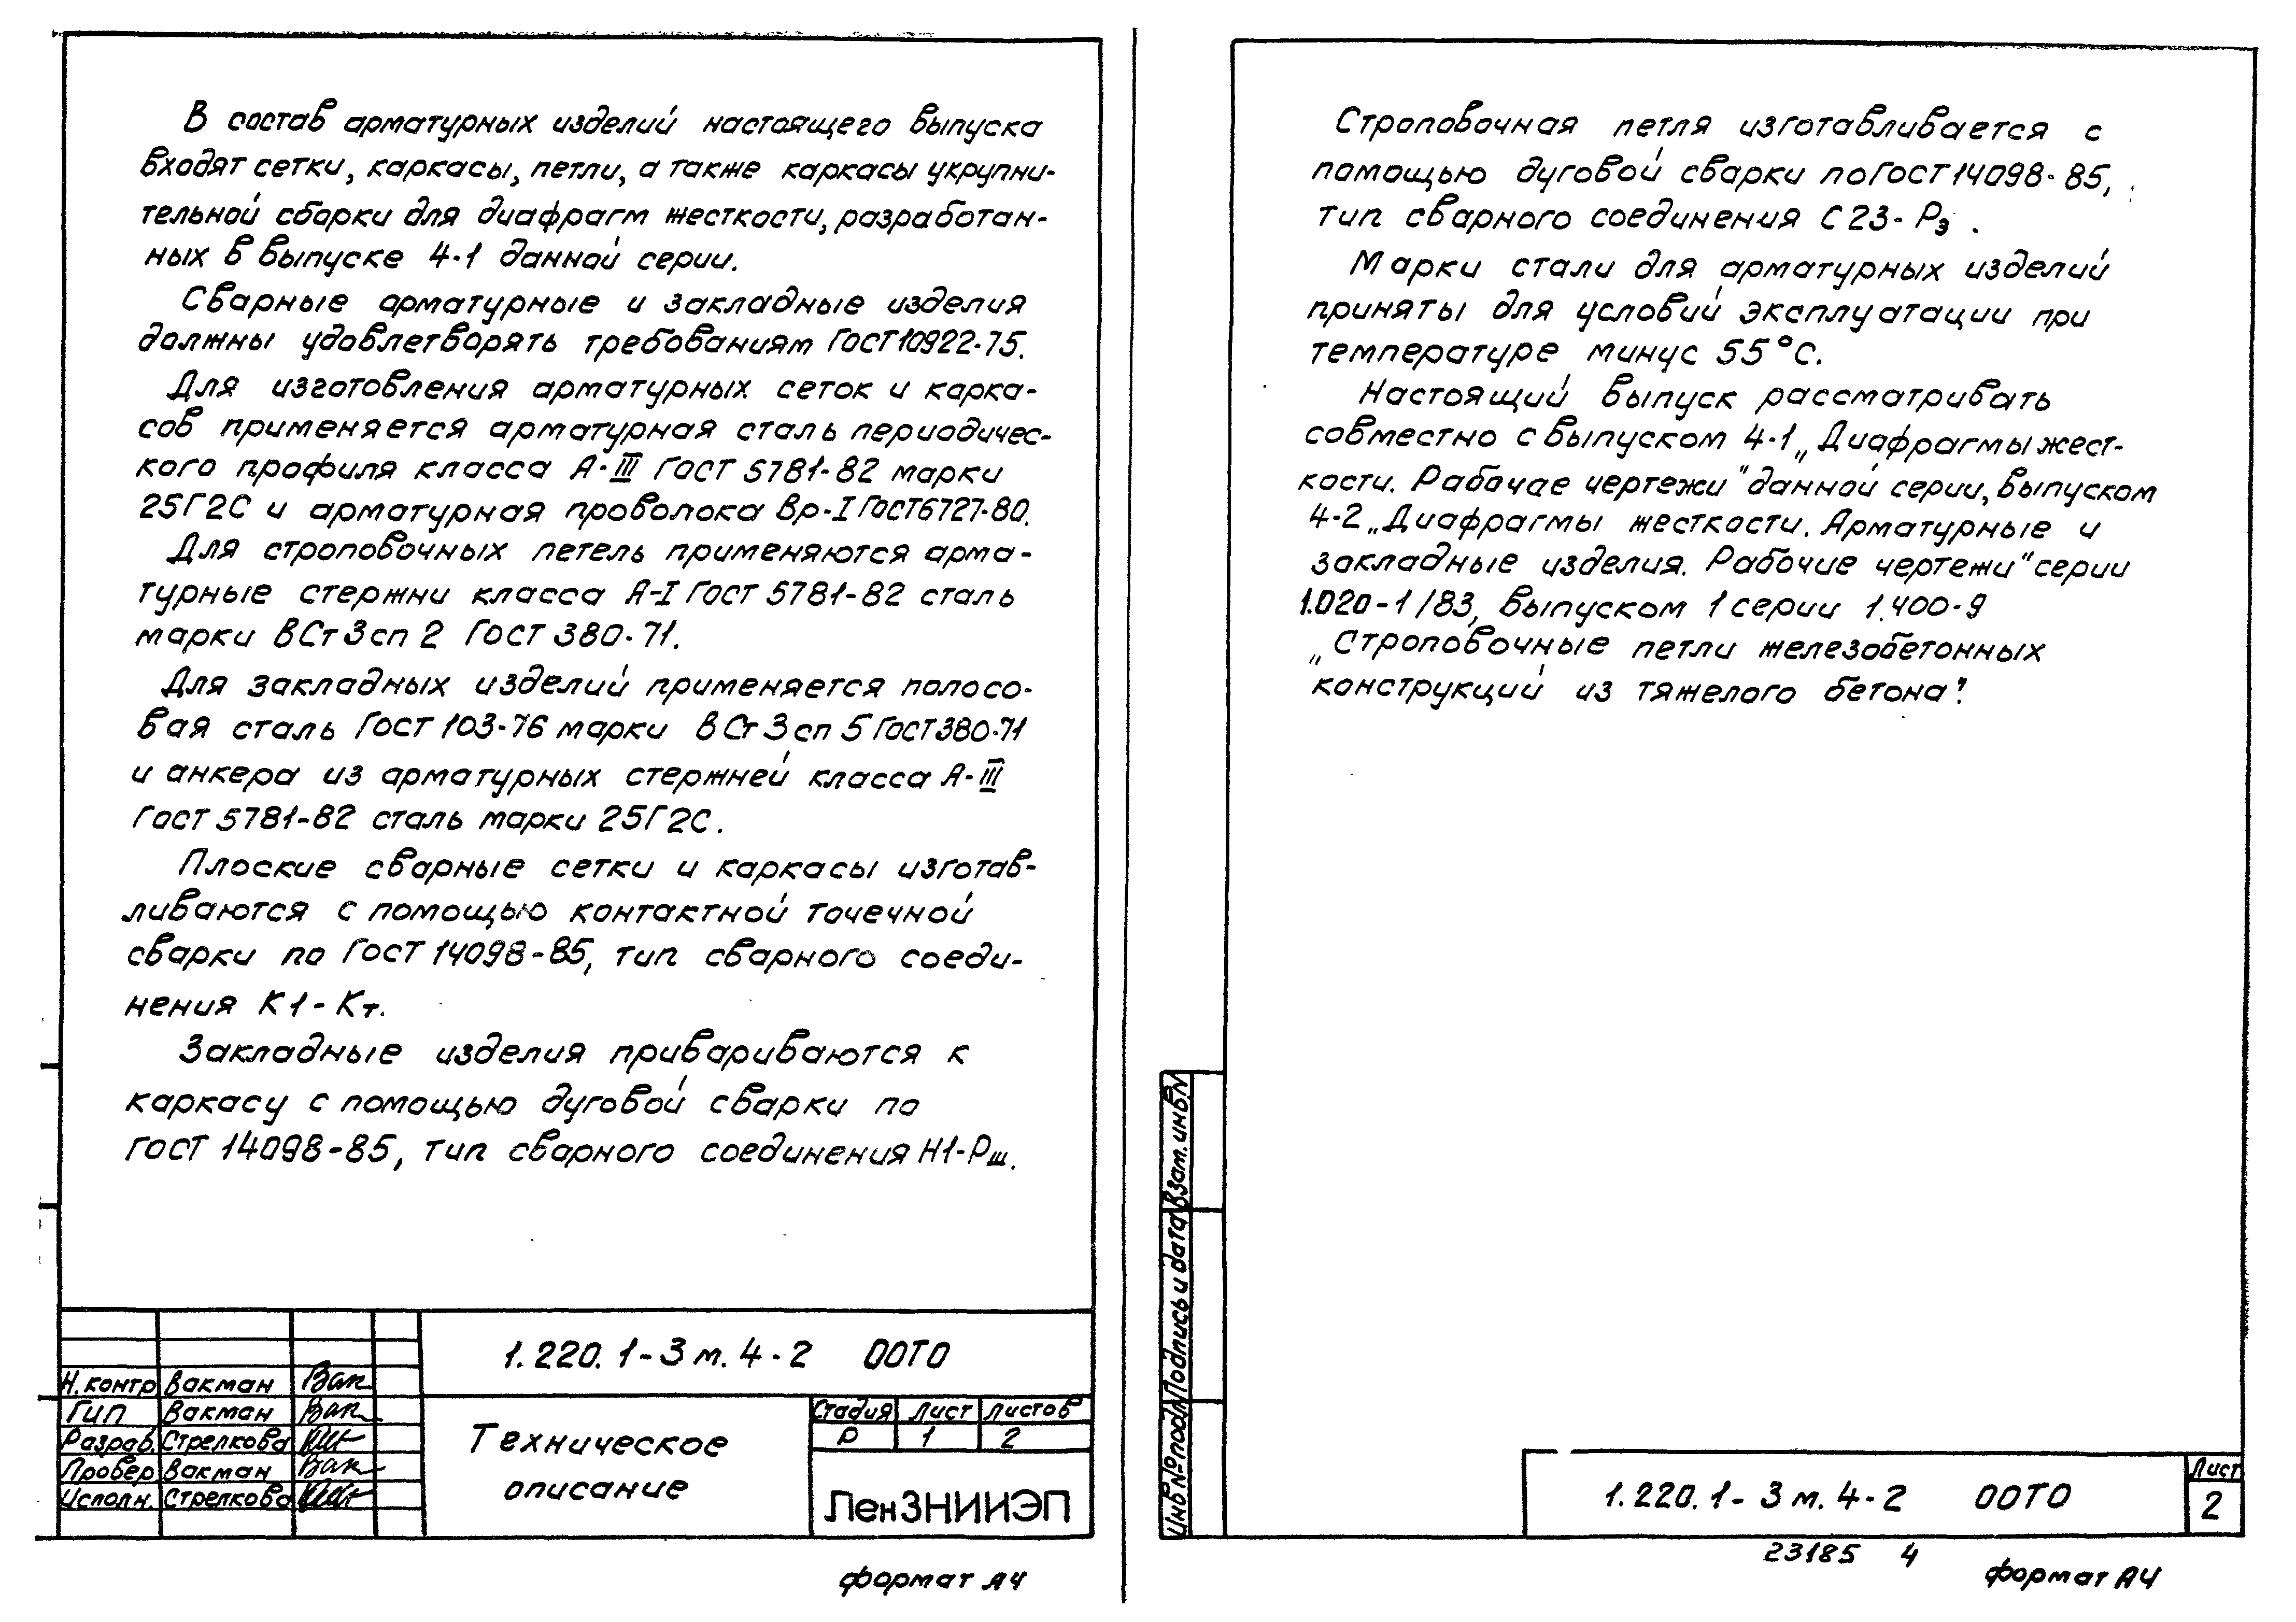 В состав арматурных изделий настоящего выпуска
входят сетки, каркасы, петли, а также каркасы укрупни-
тельной сборки для диафрагм жесткости, разработан-
ных в выпуске 4-1 данной серии.
Сварные арматурные и закладные изделия
должны удовлетворять требованиям ГОСТ 10922-75.
Для изготовления арматурных сеток и карка-
сов применяется арматурная сталь периодичес-
кого профиля класса А-III ГОСТ 5781-82 марки
25Г2С и арматурная проволока Вр-I ГОСТ 6727-80.
Для строповочных петель применяются арма-
турные стержни класса А-I ГОСТ 5781-82 сталь
марки ВСт3сп2 ГОСТ 380-71.
Для закладных изделий применяется полосо-
вая сталь ГОСТ 103-76 марки ВСт3сп5 ГОСТ 380-71
и анкера из арматурных стержней класса А-III
ГОСТ 5781-82 сталь марки 25Г2С.
Плоские сварные сетки и каркасы изготав-
ливаются с помощью контактной точечной
сварки по ГОСТ 14098-85, тип сварного соеди-
нения К1-Кт.
Закладные изделия привариваются к
каркасу с помощью дуговой сварки по
ГОСТ 14098-85, тип сварного соединения Н1-Рш.
1.220.1-3м.4-2 00ТО
Н.контр Вакман Вак
ГИП Вакман Вак
Разраб. Стрелкова
Провер Вакман Вак
Исполн. Стрелкова
Техническое
описание
Стадия Лист Листов
Р 1 2
ЛенЗНИИЭП
формат А4
Строповочная петля изготавливается с
помощью дуговой сварки по ГОСТ 14098-85,
тип сварного соединения С23-Рэ.
Марки стали для арматурных изделий
приняты для условий эксплуатации при
температуре минус 55°С.
Настоящий выпуск рассматривать
совместно с выпуском 4-1 „Диафрагмы жест-
кости. Рабочае чертежи" данной серии, выпуском
4-2 „Диафрагмы жесткости. Арматурные и
закладные изделия. Рабочие чертежи" серии
1.020-1/83, выпуском 1 серии 1.400-9
„Строповочные петли железобетонных
конструкций из тяжелого бетона".
Взам. инв N
Подпись и дата
Инв № подл
1.220.1-3м.4-2 00ТО
Лист
2
23185 4
формат А4